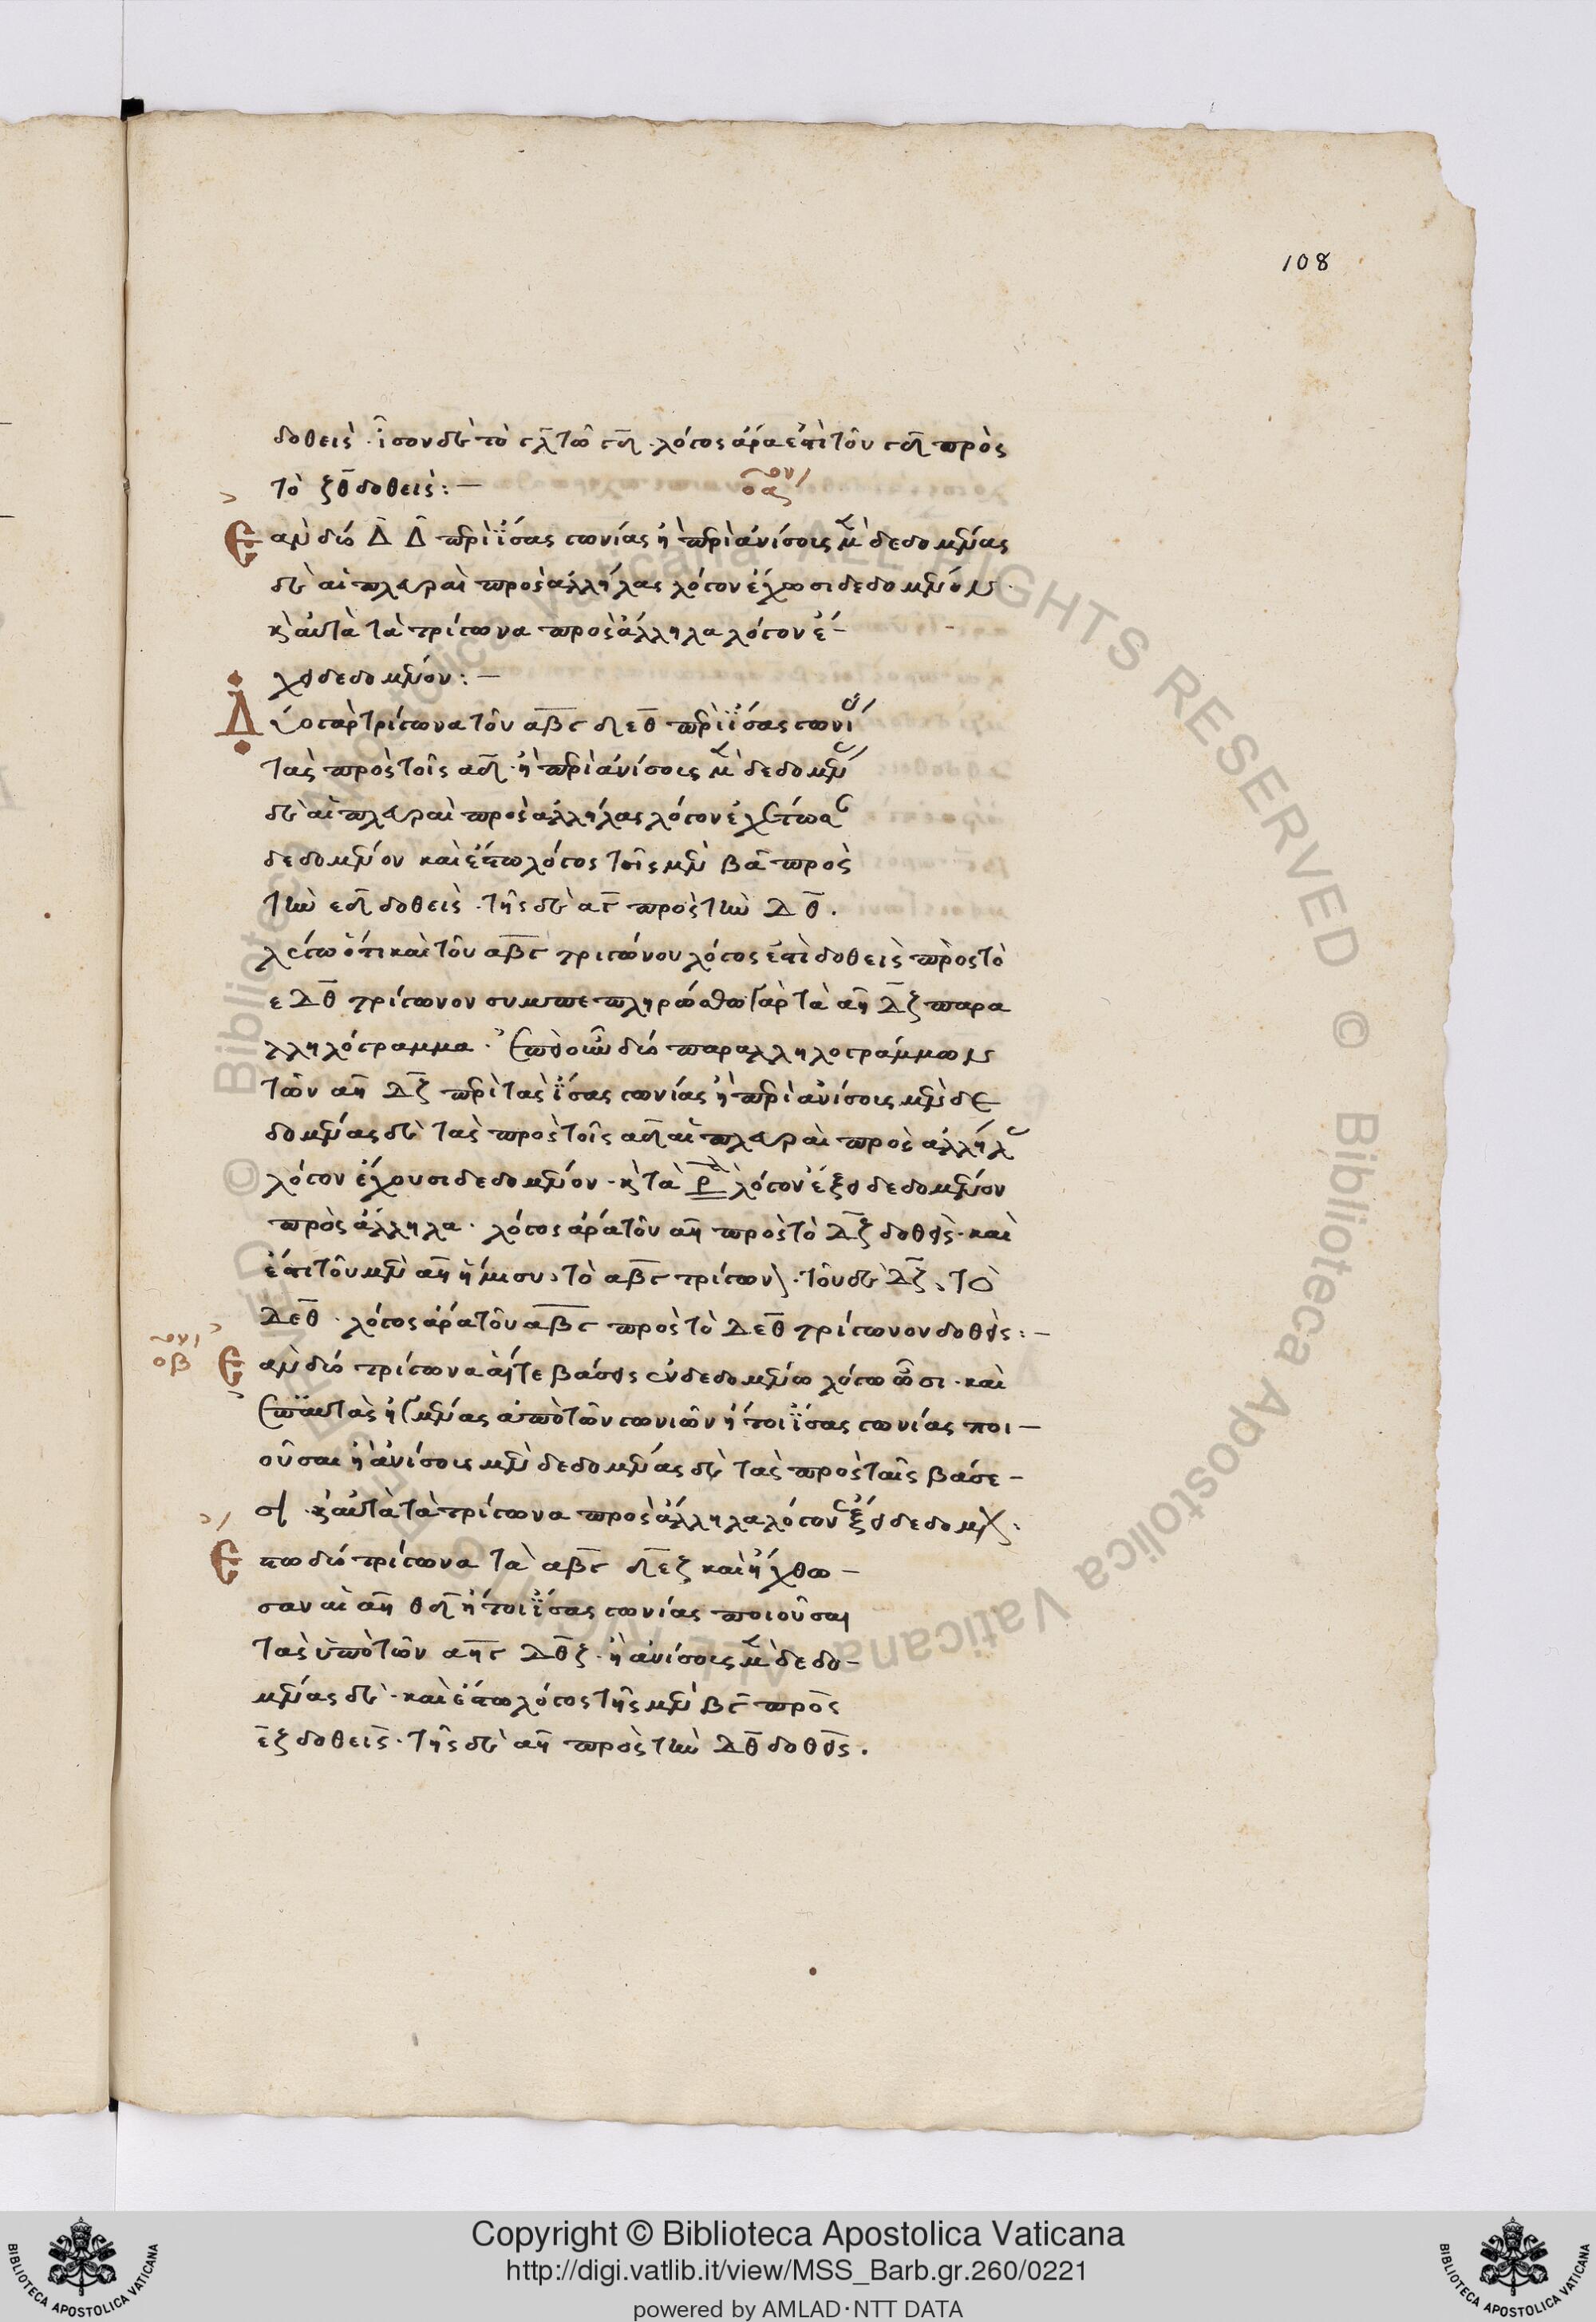 108
δοθείς · ἴσον δὲ τὸ γλ τῶ γδ · λόγος ἄρα ἐστὶ τοῦ γδ πρὸς
τὸ ζθ δοθείς : –
οα ον
Ἐὰν δύο Δ Δ περὶ ἴσας γωνίας ἢ περὶ ἀνίσους μὲν δεδομένας
δὲ αἱ πλευραὶ πρὸς ἀλλήλας λόγον ἔχωσι δεδομένον
κ αὐτὰ τὰ τρίγωνα πρὸς ἄλληλα λόγον ἕ–
χει δεδομένον : –
Δύο γὰρ τρίγωνα τῶν αβγ δεθ περὶ ἴσας γωνί
τὰς πρὸς τοῖς αδ · ἢ περὶ ἀνίσους μὲν δεδομέν
δὲ αἱ πλευραὶ πρὸς ἀλλήλας λόγον ἐχέτωσαν
δεδομένον καὶ ἔστω λόγος τῆς μὲν βα πρὸς
τὴν εδ δοθείς · τῆς δὲ αγ πρὸς τὴν δθ .
λέγω ὅτι καὶ τοῦ αβγ τριγώνου λόγος ἐστὶ δοθεὶς πρὸς τὸ
εδθ τρίγωνον συμπεπληρώσθω γὰρ τὰ αη δζ παρα
λληλόγραμμα · ἐπεὶ οὖν δύο παραλληλογράμμων
τῶν αη δζ περὶ τὰς ἴσας γωνίας ἢ περὶ ἀνίσους μὲν δε
δομένας δὲ τὰς πρὸς τοῖς αδ αἱ πλευραὶ πρὸς ἀλλήλ
λόγον ἔχουσι δεδομένον · κ τὰ ρ λόγον ἕξει δεδομένον
πρὸς ἄλληλα · λόγος ἄρα τοῦ αη πρὸς τὸ δζ δοθείς · καὶ
ἔστι τοῦ μὲν αη ἥμισυ, τὸ αβγ τρίγων · τοῦ δὲ δζ, τὸ
δεθ · λόγος ἄρα τοῦ αβγ πρὸς τὸ δεθ τρίγωνον δοθείς : –
οβ ον
Ἐὰν δύο τρίγωνα αἵ τε βάσεις ἐν δεδομένω λόγω ὦσι · καὶ
ἐπ' αὐτὰς ἠγμέναι ἀπὸ τῶν γωνιῶν ἤτοι ἴσας γωνίας ποι–
οῦσαι ἢ ἀνίσους μὲν δεδομένας δὲ τὰς πρὸς ταῖς βάσε–
σι · κ αὐτὰ τὰ τρίγωνα πρὸς ἄλληλα λόγον ἕξει δεδομ :
Ἔστω δύο τρίγωνα τὰ αβγ δεζ καὶ ἤχθω–
σαν αἱ αη θδ ἤτοι ἴσας γωνίας ποιοῦσαι
τὰς ὑπὸ τῶν αηγ δθζ · ἢ ἀνίσους μὲν δεδο–
μένας δὲ · καὶ ἔστω λόγος τῆς μὲν βγ πρὸς
εζ δοθείς · τῆς δὲ αη πρὸς τὴν δθ δοθείς .
Copyright © Biblioteca Apostolica Vaticana
http://digi.vatlib.it/view/MSS_Barb.gr.260/0221
powered by AMLAD·NTT DATA
BIBLIOTECA APOSTOLICA VATICANA
BIBLIOTECA APOSTOLICA VATICANA